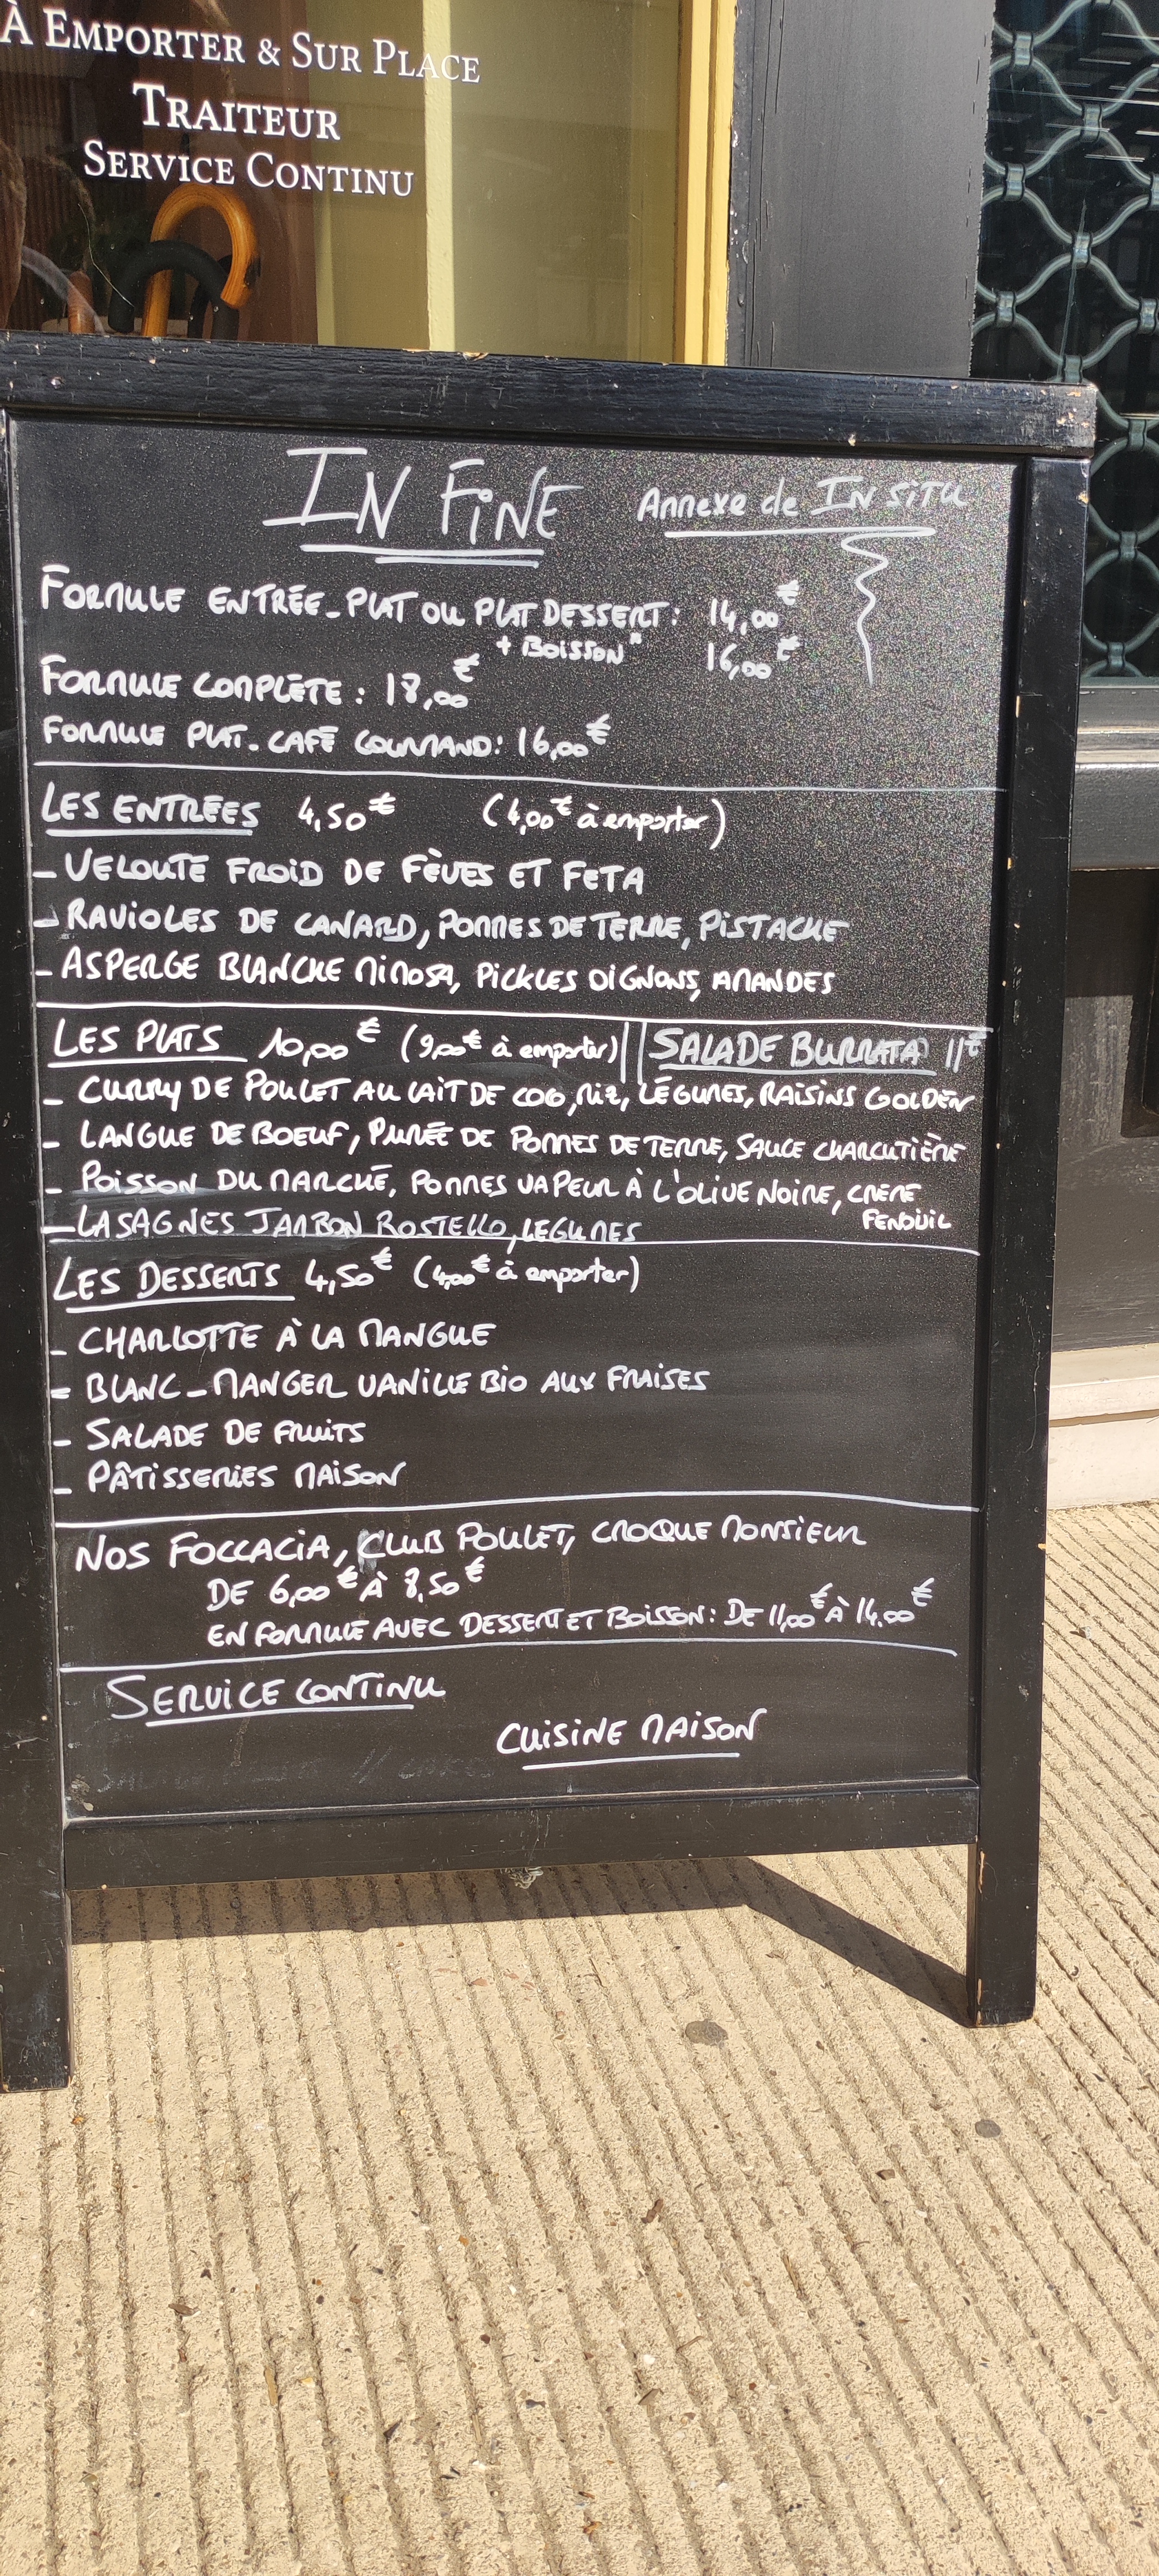 À EMPORTER & SUR PLACE
TRAITEUR
SERVICE CONTINU
IN FINE Annexe de IN SITU
FORMULE ENTRÉE-PLAT OU PLAT DESSERT: 14,00€
+ BOISSON* 16,00€
FORMULE COMPLÈTE : 18,00€
FORMULE PLAT-CAFÉ GOURMAND: 16,00€
LES ENTREES 4,50€ (4,00€ à emporter)
- VELOUTE FROID DE FÈVES ET FETA
- RAVIOLES DE CANARD, POMMES DE TERRE, PISTACHE
- ASPERGE BLANCHE MIMOSA, PICKLES OIGNONS, AMANDES
LES PLATS 10,00€ (9,00€ à emporter) || SALADE BURRATA 11€
- CURRY DE POULET AU LAIT DE COCO, RIZ, LÉGUMES, RAISINS GOLDEN
- LANGUE DE BOEUF, PURÉE DE POMMES DE TERRE, SAUCE CHARCUTIÈRE
- POISSON DU MARCHÉ, POMMES VAPEUR À L'OLIVE NOIRE, CREME
FENOUIL
- LASAGNES JAMBON ROSTELLO, LEGUMES
LES DESSERTS 4,50€ (4,00€ à emporter)
- CHARLOTTE À LA MANGUE
- BLANC-MANGER VANILLE BIO AUX FRAISES
- SALADE DE FRUITS
- PÂTISSERIES MAISON
NOS FOCCACIA, CLUB POULET, CROQUE MONSIEUR
DE 6,00€ À 8,50€
EN FORMULE AVEC DESSERT ET BOISSON: DE 11,00€ À 14.00€
SERVICE CONTINU
CUISINE MAISON